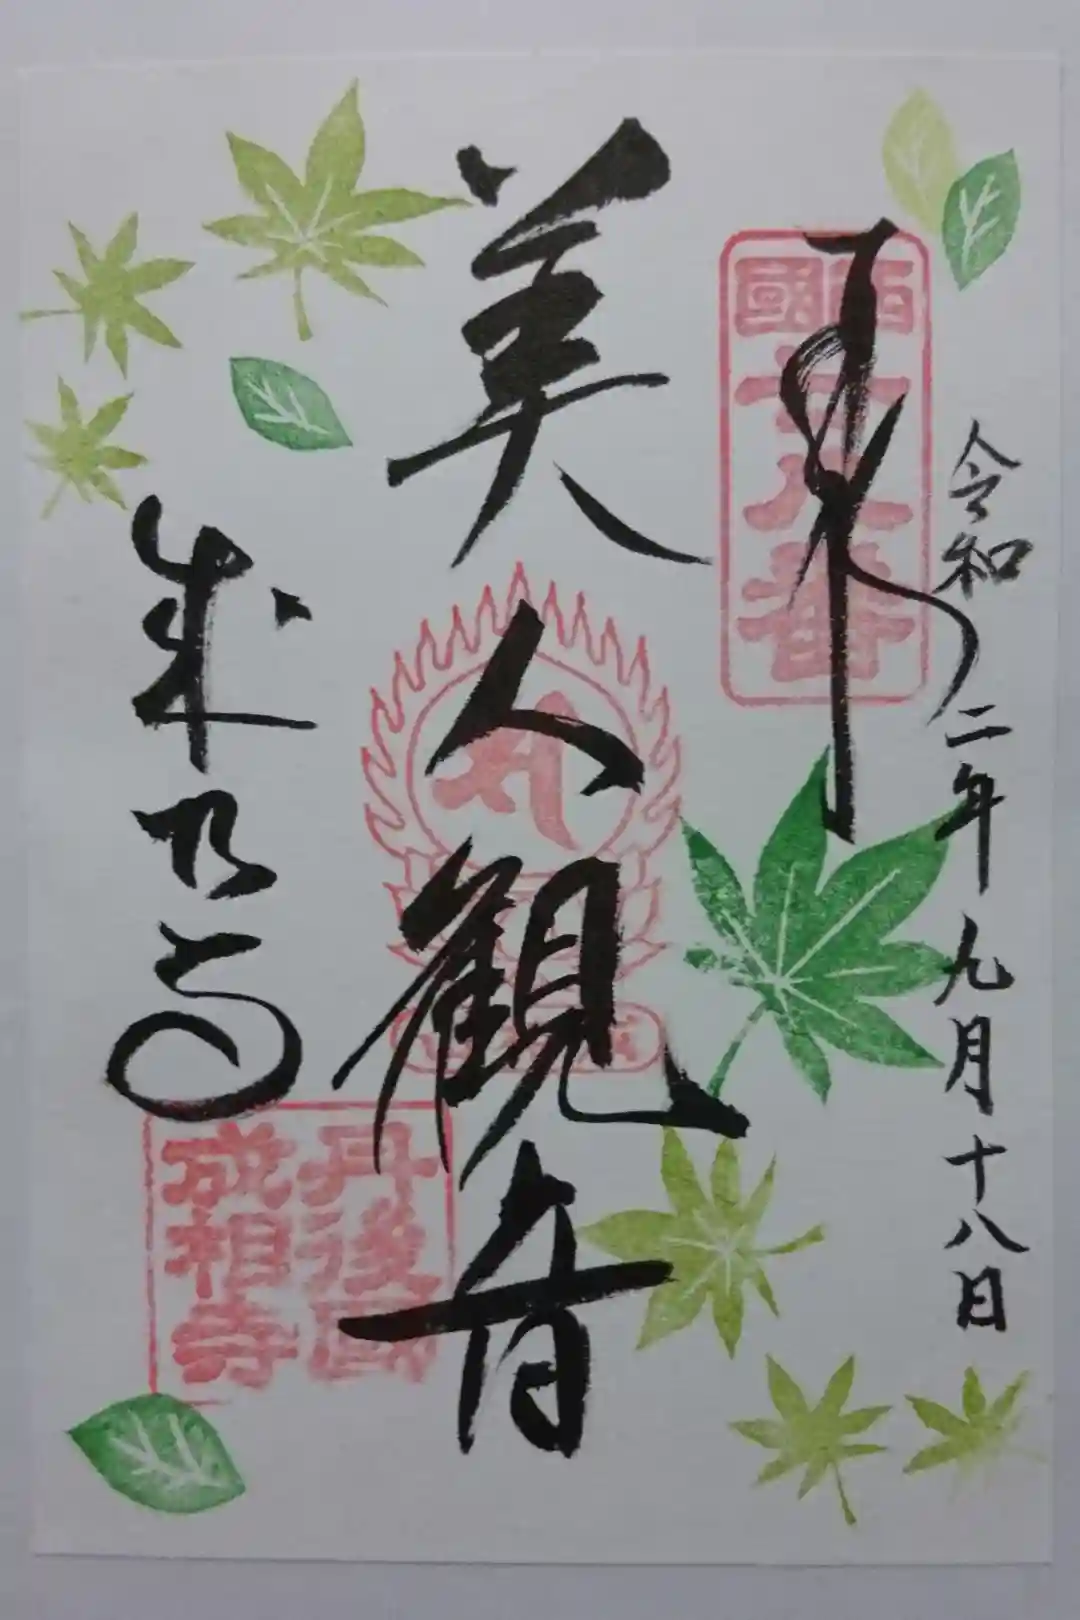 令和二年九月十八日
奉拝
西國
廿八番
美人観音
成相寺
丹後國
成相寺